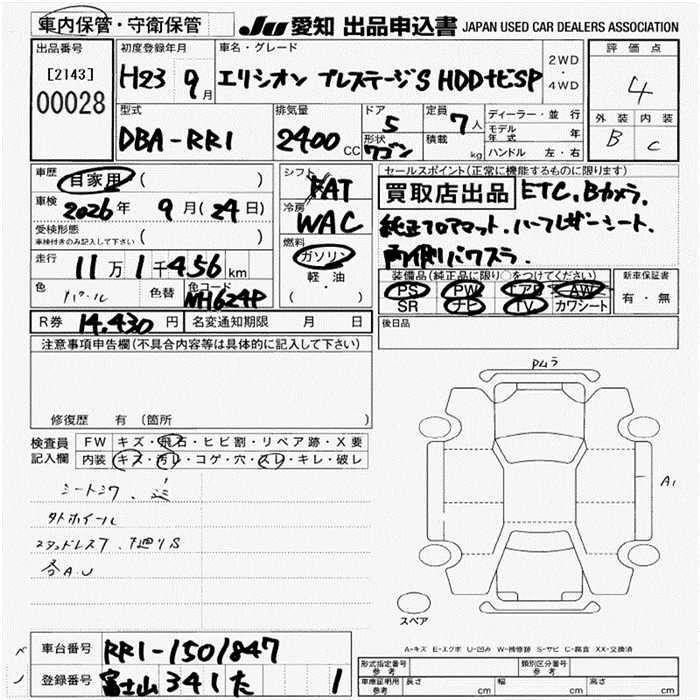 車内保管・守衛保管
JU 愛知 出品申込書 JAPAN USED CAR DEALERS ASSOCIATION
出品番号
[2143]
00028
初度登録年月
H23 9月
車名・グレード
エリシオン プレステージS HDDナビSP
2WD
・
4WD
評価点
4
外装 内装
B C
型式
DBA-RR1
排気量
2400 CC
ドア
5
形状
ワゴン
定員
7人
積載
kg
ディーラー・並行
モデル年式 年
ハンドル 左・右
車歴 自家用 ( )
車検 2026年 9月(24日)
受検形態
車検付きのみ記入して下さい ( )
走行 11万1千456km
色 パール 色替 色コード NH624P
R券 14.430円 名変通知期限 月 日
シフト
FAT
冷房
WAC
燃料
ガソリン
軽・油
( ・ )
セールスポイント(正常に機能するものに限ります)
買取店出品 ETC.Bカメラ.
純正フロアマット.ハーフレザーシート.
両側パワスラ.
装備品(純正品に限り○をつけてください)
PS PW エアB AW
SR ナビ TV カワシート
新車保証書
有・無
後日品
注意事項申告欄(不具合内容等は具体的に記入して下さい)
修復歴 有 (箇所 )
検査員記入欄
FW キズ・飛石・ヒビ割・リペア跡・X要
内装 キズ・汚レ・コゲ・穴・スレ・キレ・破レ
シートシワ.シミ
タトホイール
スタッドレス7.
各A.U
PMラ
A1
スペア
A-キズ E-エクボ U-凹み W-補修跡 S-サビ C-腐食 XX-交換済
車台番号 RR1-1501847
登録番号 富士山 341 た 1
形式指定番号
参考
類別区分番号
参考
車庫証明用
参考
長さ cm 幅 cm 高さ cm